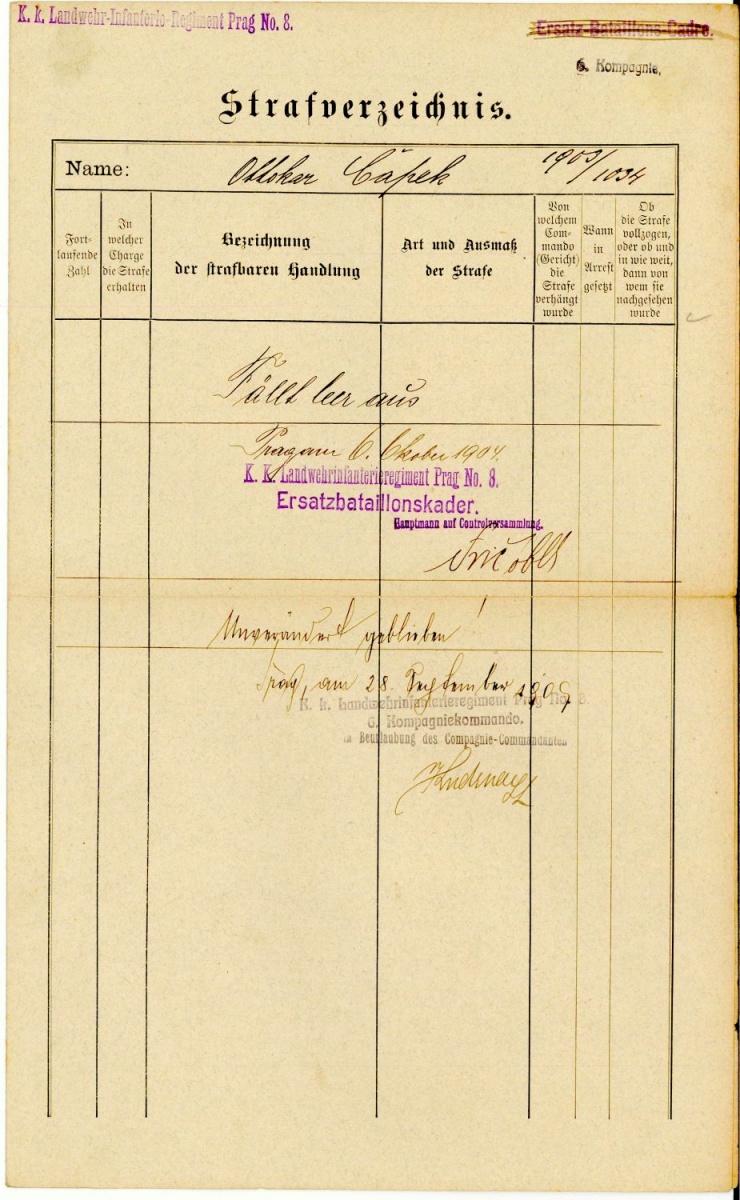 K. k. Landwehr-Infanterie-Regiment Prag No. 8.
Ersatz-Bataillons-Cadre.
6. Kompagnie,
Strafverzeichnis.
Name: Ottokar Čapek 1903/1034
Fort-
laufende
Zahl
In
welcher
Charge
die Strafe
erhalten
Bezeichnung
der strafbaren Handlung
Art und Ausmaß
der Strafe
Von
welchem
Com-
mando
(Gericht)
die
Strafe
verhängt
wurde
Wann
in
Arrest
gesetzt
Ob
die Strafe
vollzogen,
oder ob und
in wie weit,
dann von
wem sie
nachgesehen
wurde
Fällt leer aus
Prag am 6. Oktober 1904.
K. K. Landwehrinfanterieregiment Prag No. 8.
Ersatzbataillonskader.
Hauptmann auf Controlversammlung.
Unverändert geblieben!
Prag, am 28. September 1905
K. k. Landwehrinfanterieregiment Prag No. 8.
6. Kompagniekommando.
in Beurlaubung des Compagnie-Commandanten